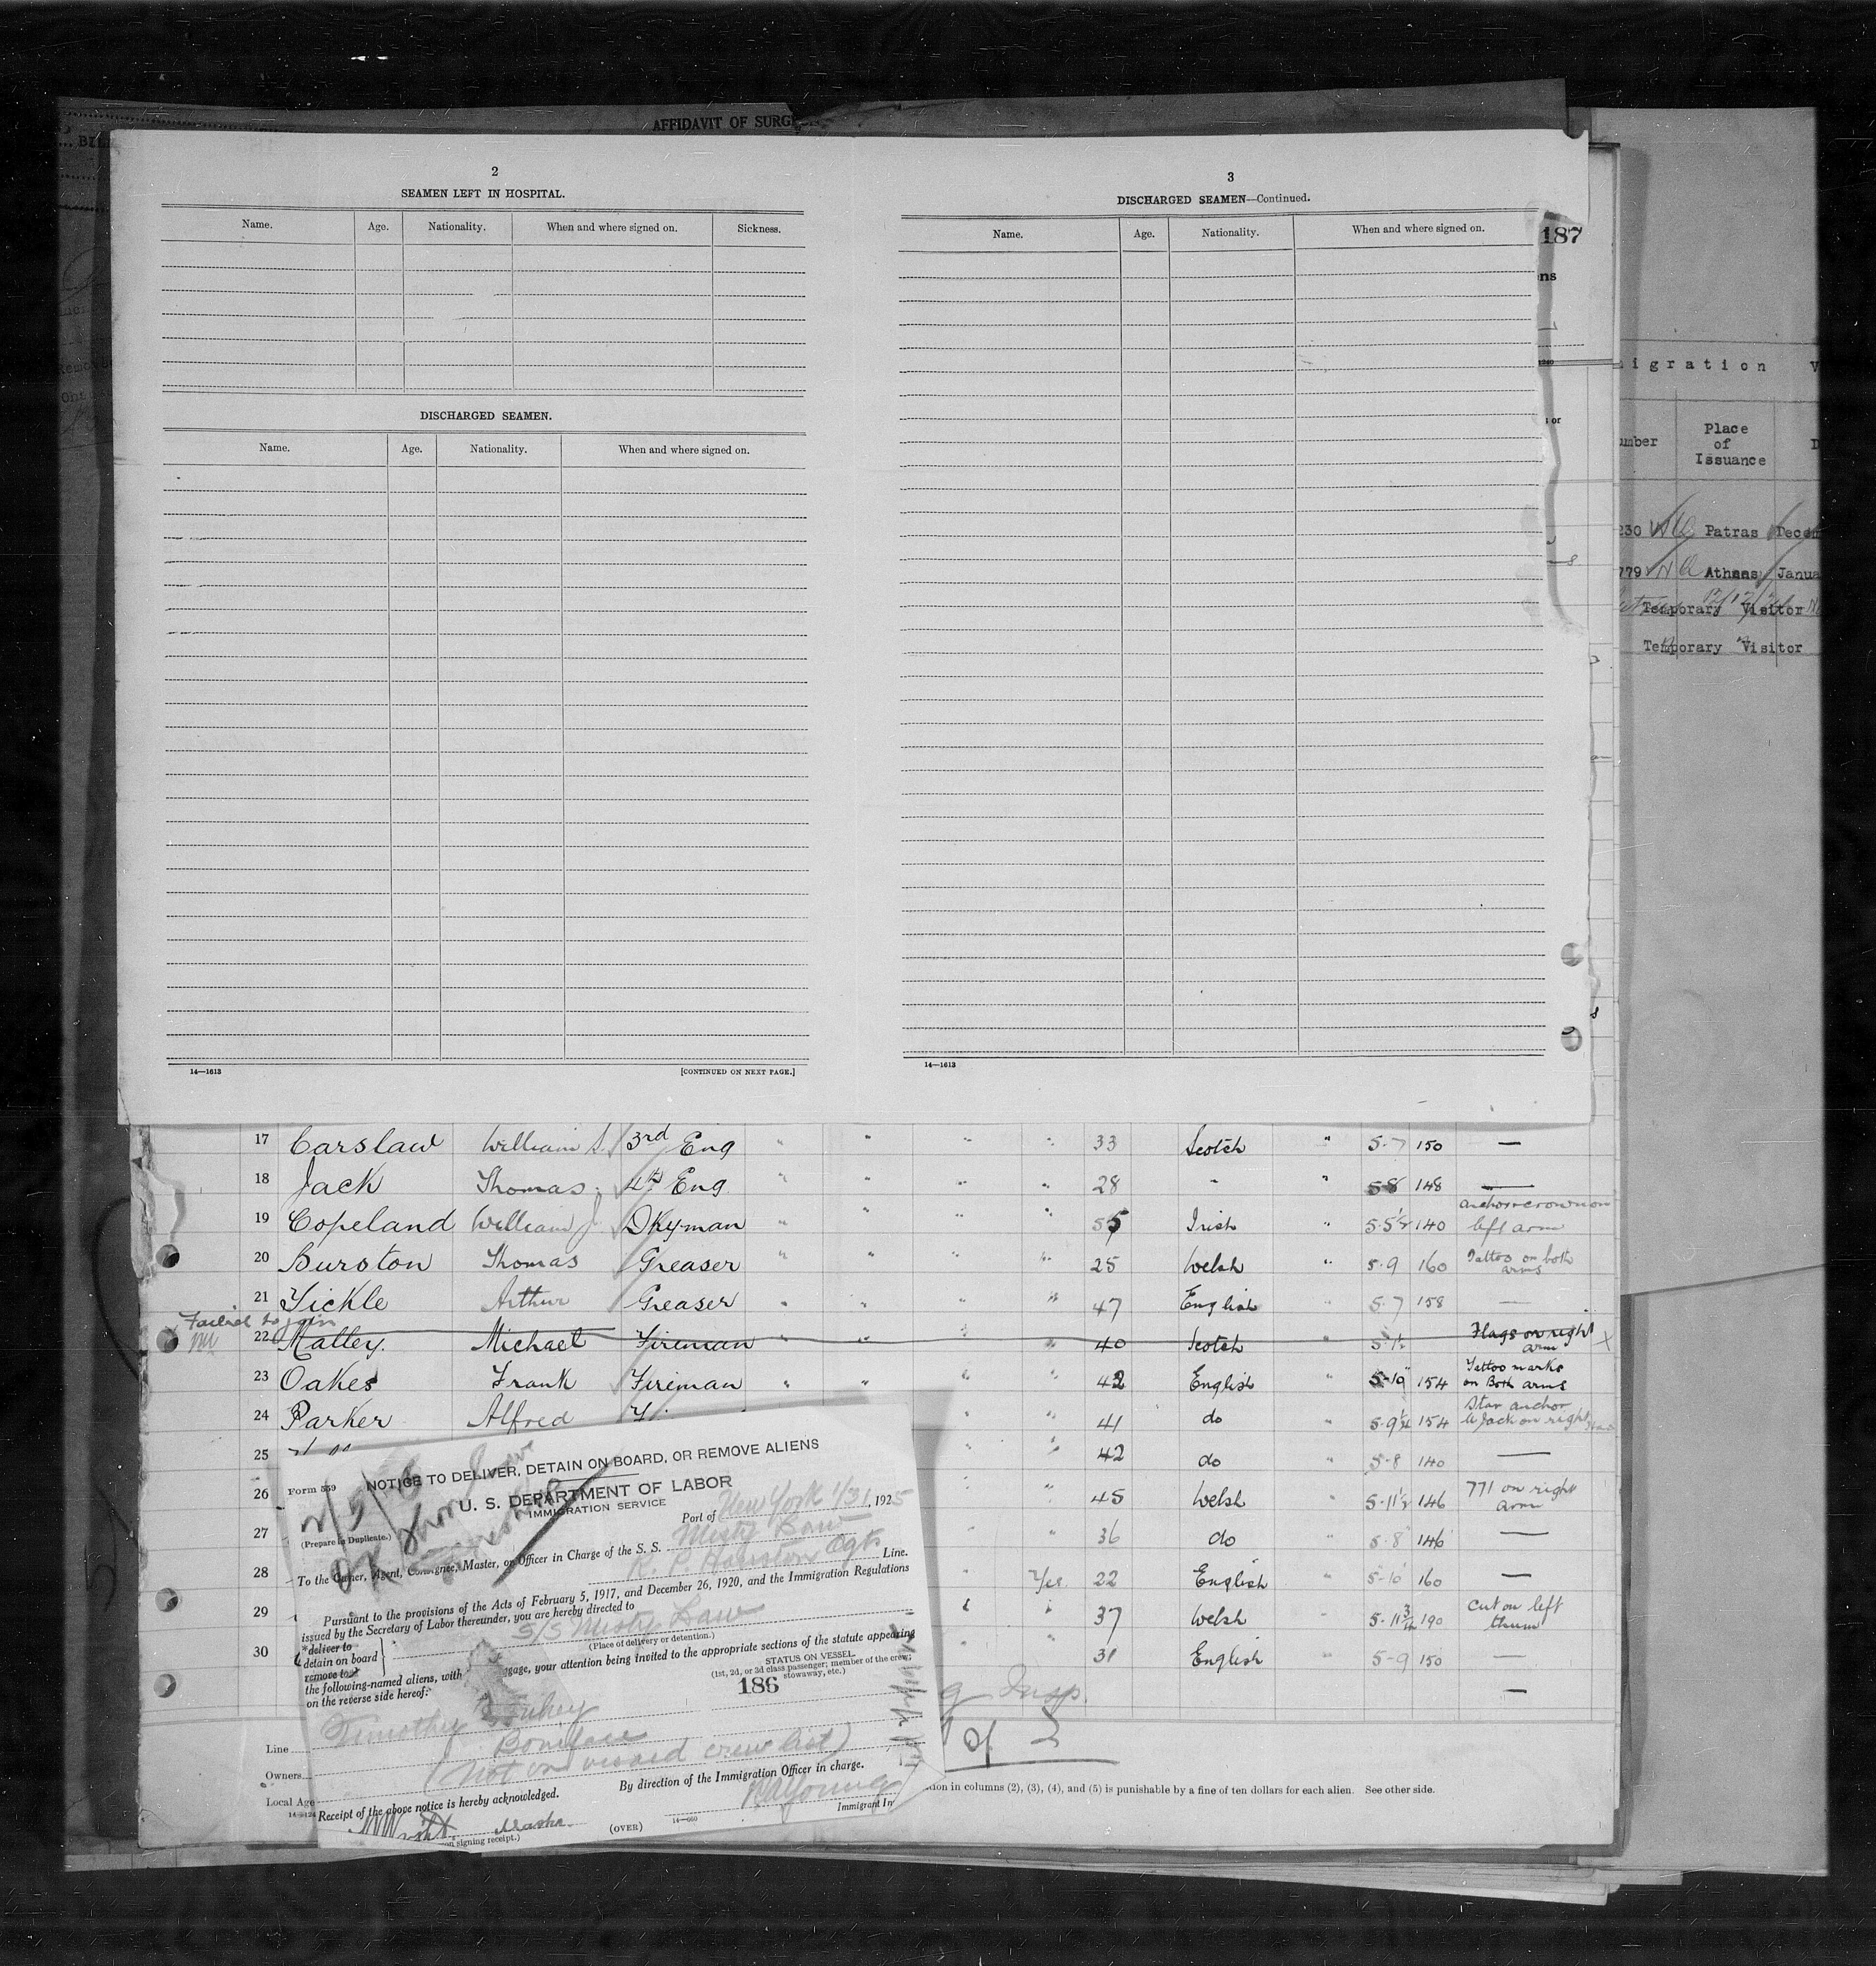 AFFIDAVIT OF SURGE
2
SEAMEN LEFT IN HOSPITAL.
Name. Age. Nationality. When and where signed on. Sickness.
DISCHARGED SEAMEN.
Name. Age. Nationality. When and where signed on.
14—1613 [CONTINUED ON NEXT PAGE.]
3
DISCHARGED SEAMEN—Continued.
Name. Age. Nationality. When and where signed on.
14—1613
187
ens
igration V
umber Place of Issuance D
230 Patras Decem
779 Athens Janua
Temporary Visitor
Temporary Visitor
17 Carslaw William S. 3rd Eng " " " " 33 Scotch " 5-7 150 —
18 Jack Thomas 4th Eng " " " " 28 " " 5-8 148 —
19 Copeland William J. Dkyman " " " " 55 Irish " 5-5½ 140 anchor crown on left arm
20 Burston Thomas Greaser " " " " 25 Welsh " 5-9 160 Tattoo on both arms
21 Tickle Arthur Greaser " " " " 47 English " 5-7 158 —
Failed to join
22 Malley. Michael Fireman " " " " 40 Scotch " 5-½ Flags on right arm X
23 Oakes Frank Fireman " " " " 42 English " 5-10 154 Tattoo marks on Both arms
24 Parker Alfred " " 41 do " 5-9¼ 154 Star anchor & Jack on right
25 " " 42 do " 5-8 140 —
26 " " 45 Welsh " 5-11½ 146 771 on right arm
27 " " 36 do " 5-8 146 —
28 " Yes 22 English " 5-10 160 —
29 " " 37 Welsh " 5-11¾ 190 Cut on left thum
30 " " 31 English " 5-9 150 —
—
Insp.
Line
Owners
Local Age
14-3124
tion in columns (2), (3), (4), and (5) is punishable by a fine of ten dollars for each alien. See other side.
Form 559
NOTICE TO DELIVER, DETAIN ON BOARD, OR REMOVE ALIENS
U. S. DEPARTMENT OF LABOR
IMMIGRATION SERVICE
(Prepare in Duplicate.)
Port of New York 1/31, 1925
To the Owner, Agent, Consignee, Master, or Officer in Charge of the S. S. Misty Law
R. P. Houston Agts Line.
Pursuant to the provisions of the Acts of February 5, 1917, and December 26, 1920, and the Immigration Regulations
issued by the Secretary of Labor thereunder, you are hereby directed to
*deliver to
detain on board
remove to
S/S Misty Law
(Place of delivery or detention.)
the following-named aliens, with gage, your attention being invited to the appropriate sections of the statute appearing
on the reverse side hereof:
STATUS ON VESSEL
(1st, 2d, or 3d class passenger; member of the crew; stowaway, etc.)
186
Timothy
Boniface
(Not on visaed crew list)
By direction of the Immigration Officer in charge.
Receipt of the above notice is hereby acknowledged.
Young
Immigrant In
Master
on signing receipt.)
(OVER)
14—660